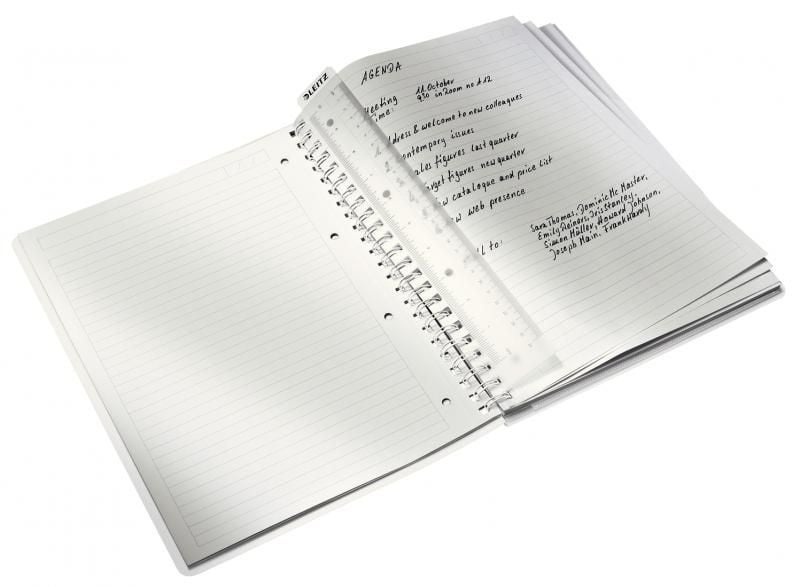 LEITZ
AGENDA
Meeting 11. October
Time: 930 in Room no 112
ddress & welcome to new colleagues
ontempory issues
ales figures last quarter
arget figures new quarter
w catalogue and price list
w web presence
l to: Sara Thomas, Dominic Mc Master,
Emily Reiners, Iris Stanley,
Simon Müller, Howard Johnson,
Joseph Main, Frank Hardy